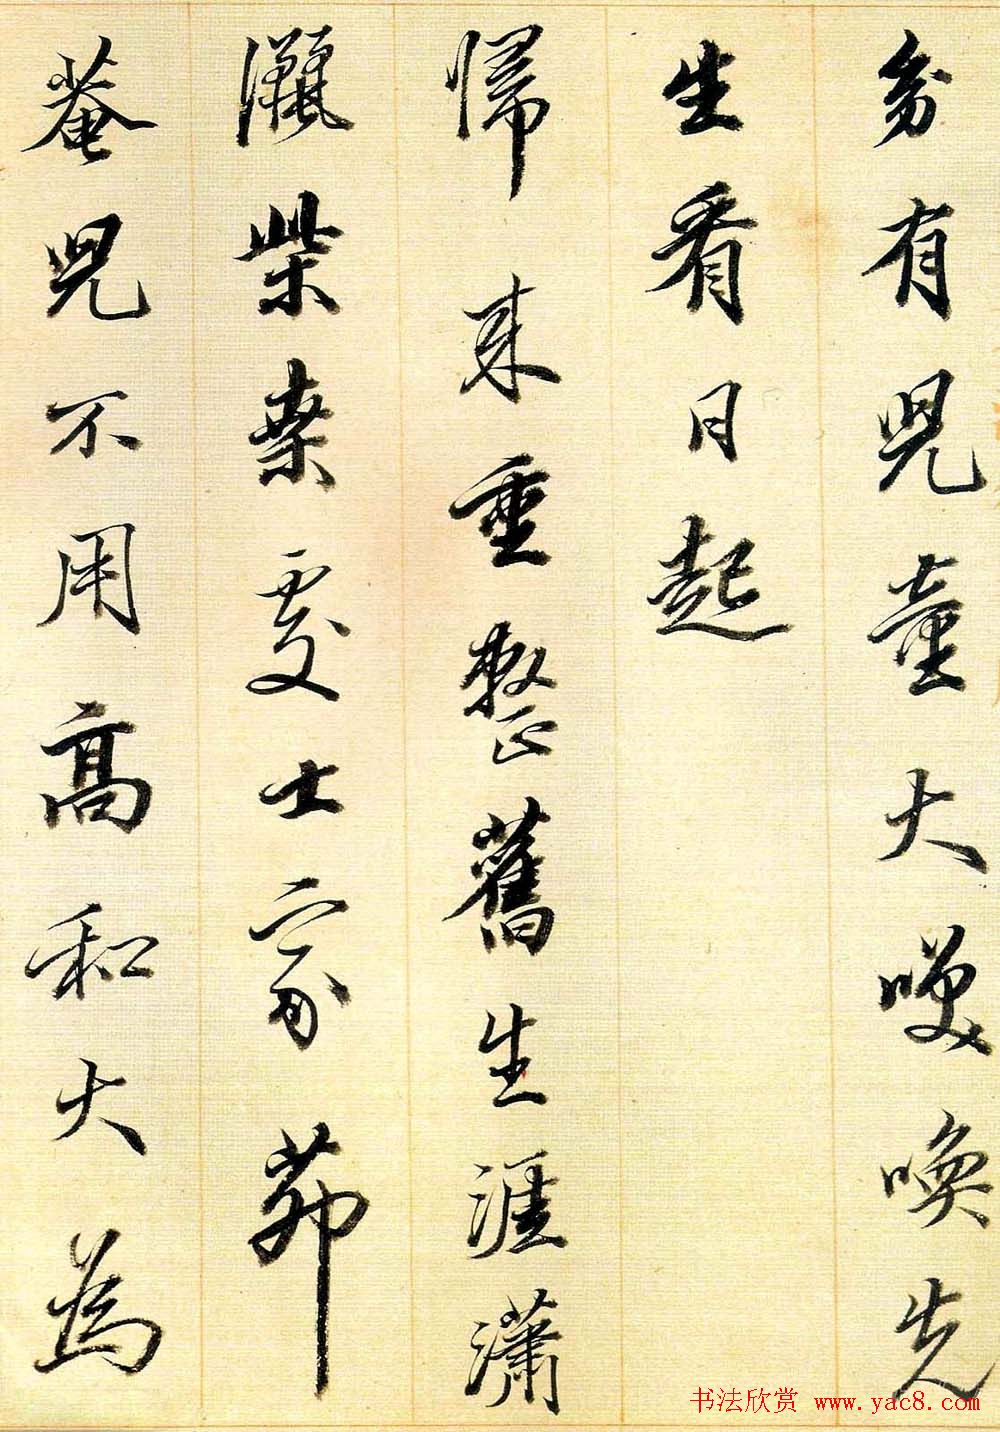 有兒童大咲喚先
生看日起
歸來重整舊生涯瀟
灑柴桑處士家茆
菴兒不用高和大為
书法欣赏 www.yac8.com